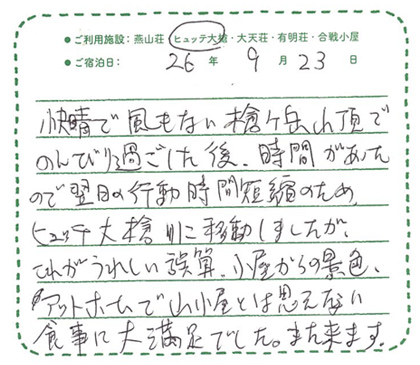 ●ご利用施設：燕山荘 ヒュッテ大槍・大天荘・有明荘・合戦小屋
●ご宿泊日： 26 年 9 月 23 日
快晴で風もない槍ヶ岳山頂で
のんびり過ごした後、時間があった
ので翌日の行動時間短縮のため
ヒュッテ大槍に移動しましたが、
これがうれしい誤算。小屋からの景色、
アットホームで山小屋とは思えない
食事に大満足でした。また来ます。